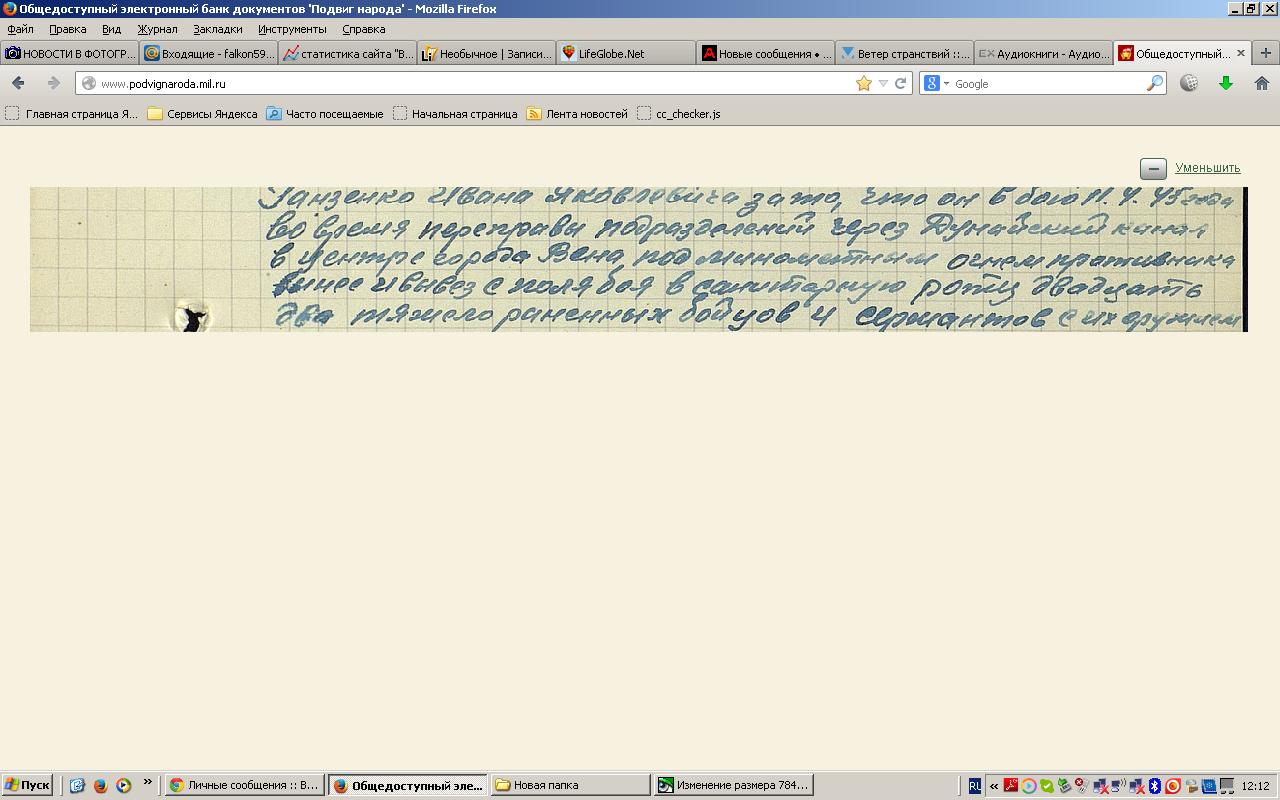 Общедоступный электронный банк документов 'Подвиг народа' - Mozilla Firefox
Файл Правка Вид Журнал Закладки Инструменты Справка
НОВОСТИ В ФОТОГР... Входящие - falkon59... статистика сайта "В... Необычное | Записи... LifeGlobe.Net Новые сообщения •... Ветер странствий ::... Аудиокниги - Аудио... Общедоступный...
www.podvignaroda.mil.ru Google
Главная страница Я... Сервисы Яндекса Часто посещаемые Начальная страница Лента новостей cc_checker.js
Уменьшить
Ганзенко Ивана Яковлевича за то, что он в бою 11.4.45 года
во время переправы подразделений через Дунайский канал
в центре города Вена под минометным огнем противника
вынес и вывез с поля боя в санитарную роту двадцать
два тяжело раненных бойцов и сержантов с их оружием
Пуск » Личные сообщения :: В... Общедоступный эле... Новая папка Изменение размера 784... RU « 12:12